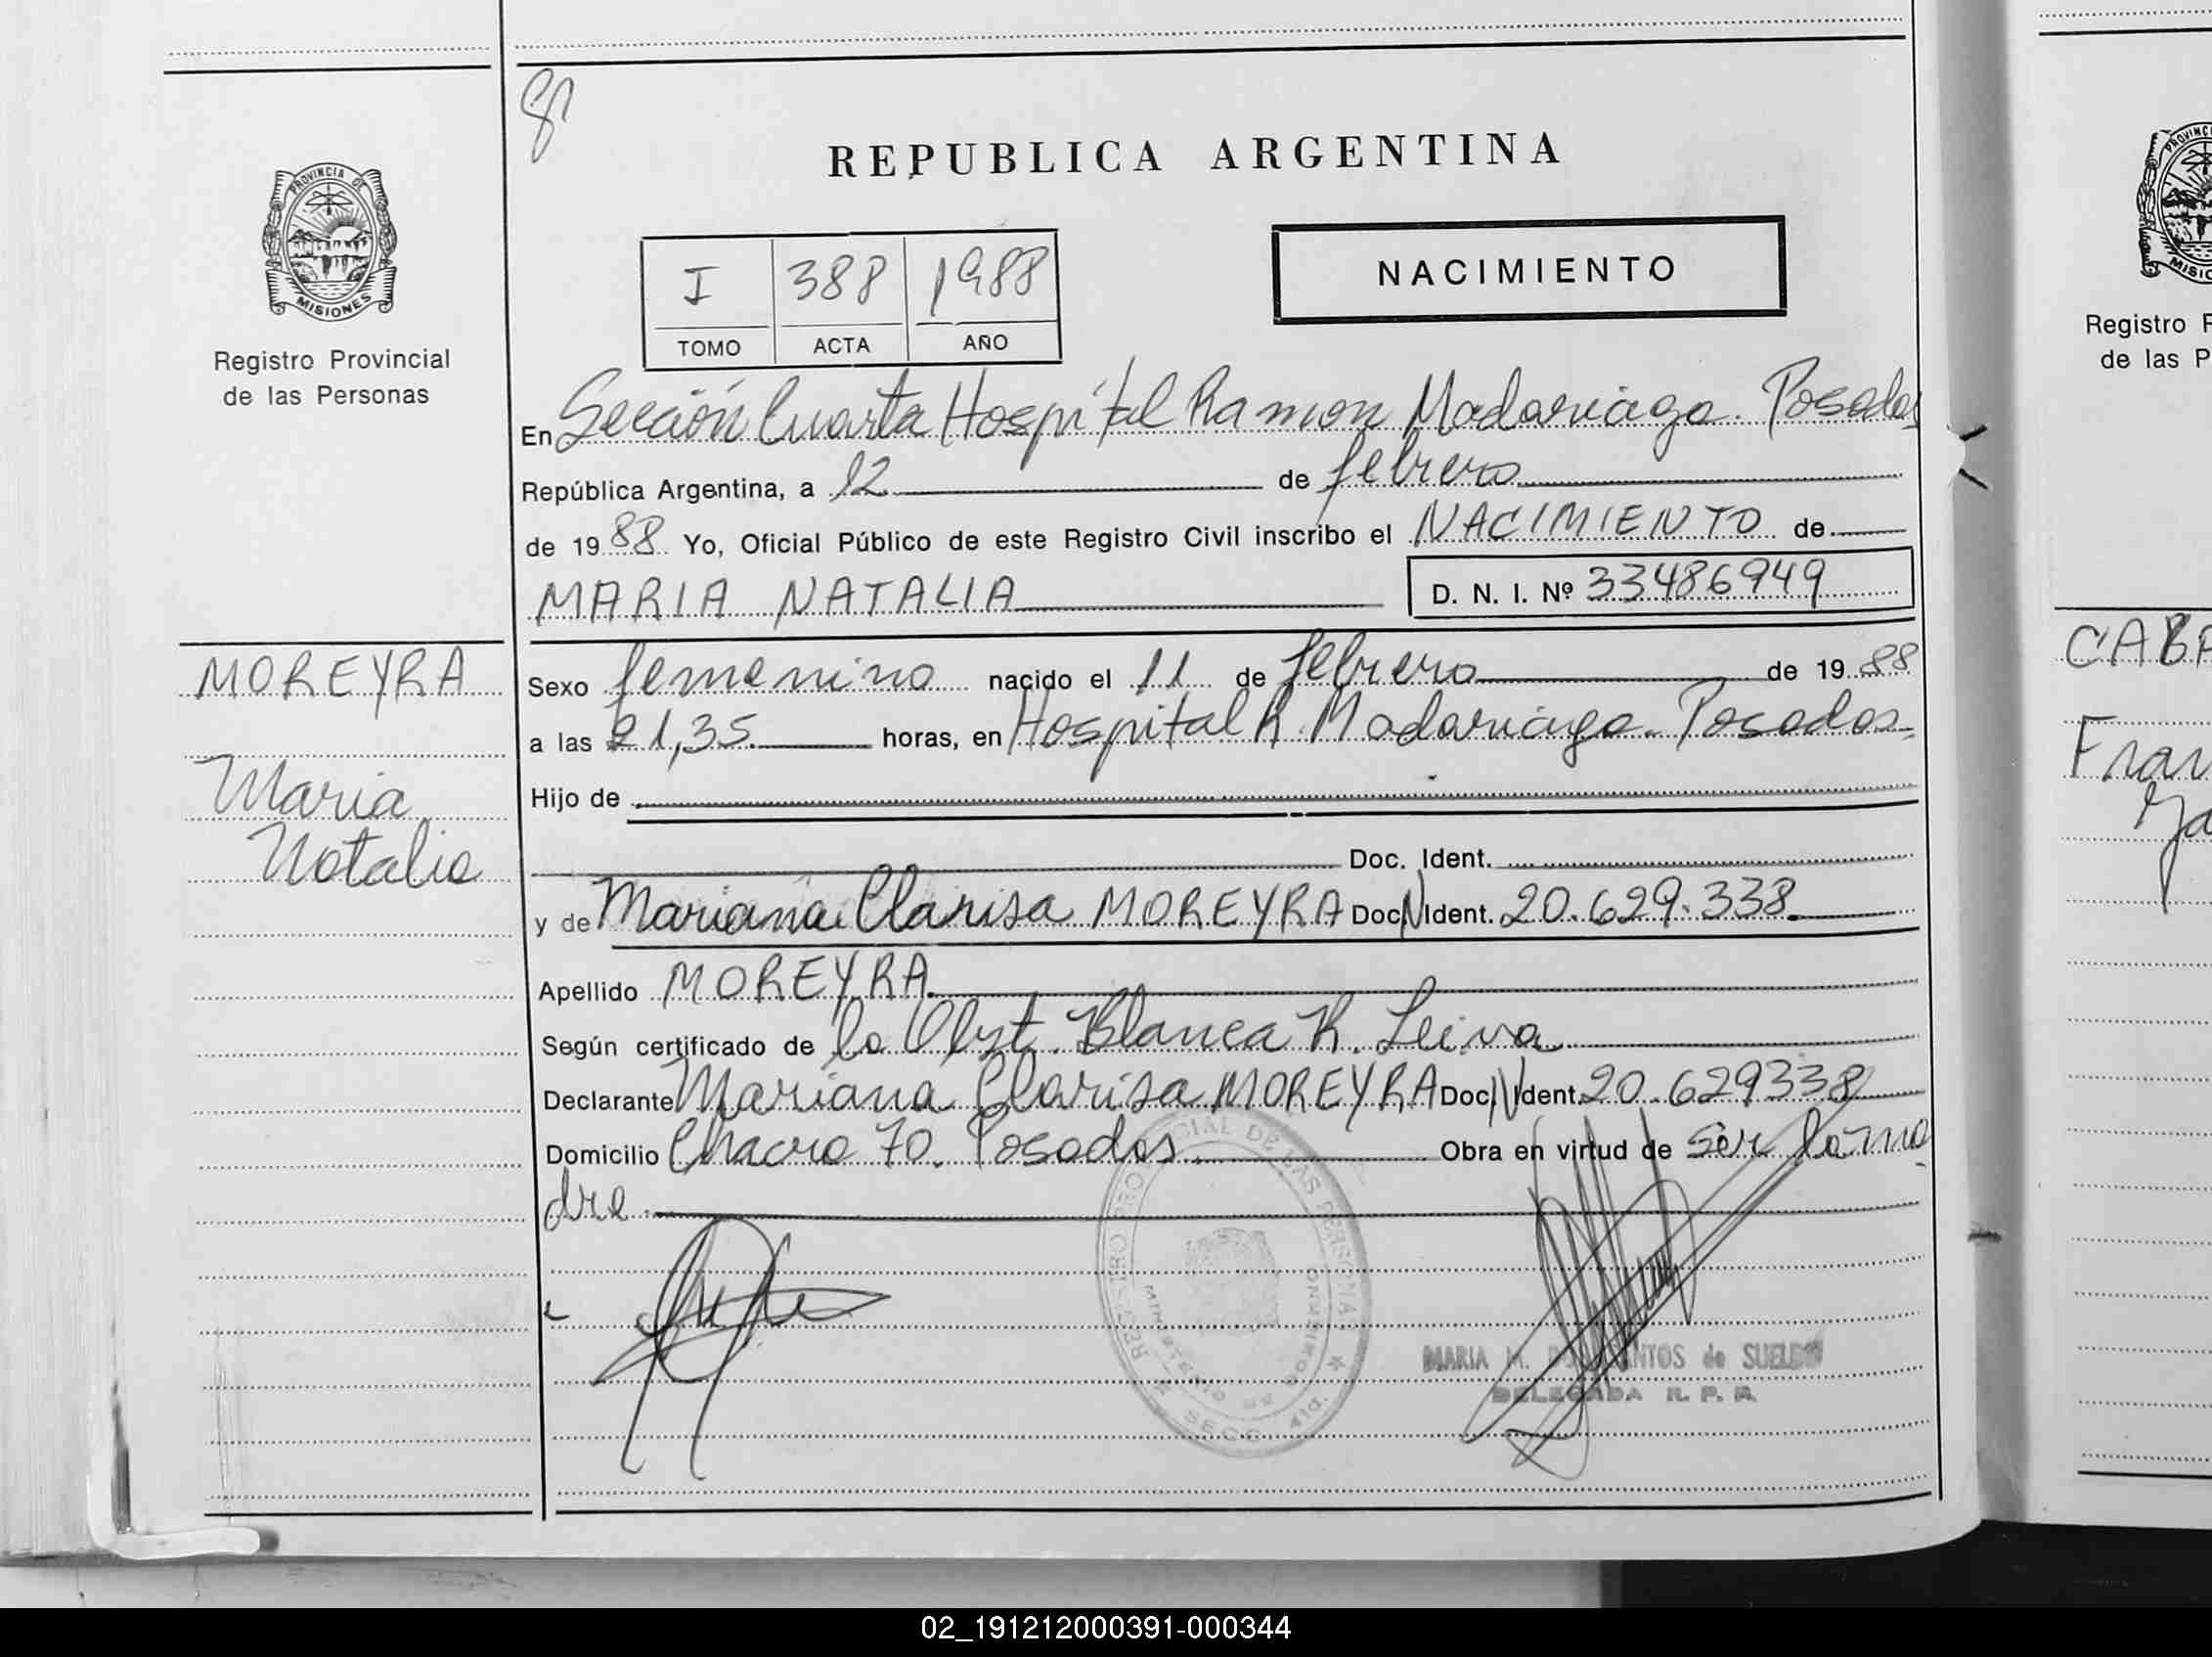 REPUBLICA ARGENTINA
PROVINCIA DE
MISIONES
Registro Provincial
de las Personas
I 388 1988
TOMO ACTA AÑO
NACIMIENTO
En Sección Cuarta Hospital Ramon Madariaga. Posadas
República Argentina, a 12 de febrero
de 1988 Yo, Oficial Público de este Registro Civil inscribo el NACIMIENTO de
MARIA NATALIA D. N. I. Nº 33486949
MOREYRA
Maria
Natalia
Sexo femenino nacido el 11 de febrero de 1988
a las 21,35 horas, en Hospital R. Madariaga. Posadas
Hijo de
Doc. Ident.
y de Mariana Clarisa MOREYRA Doc. N Ident. 20.629.338.
Apellido MOREYRA
Según certificado de la Obst. Blanca R. Leiva
Declarante Mariana Clarisa MOREYRA Doc. N Ident. 20.629338
Domicilio Chacra 70. Posadas Obra en virtud de ser la ma
dre.
REGISTRO PROVINCIAL DE LAS PERSONAS
MINISTERIO DE GOBIERNO
SECC. 4ta.
MARIA M. SANTOS de SUELDO
DELEGADA R. P. P.
PROVINCI
MISIO
Registro P
de las P
CABA
Fran
Ja
02_191212000391-000344